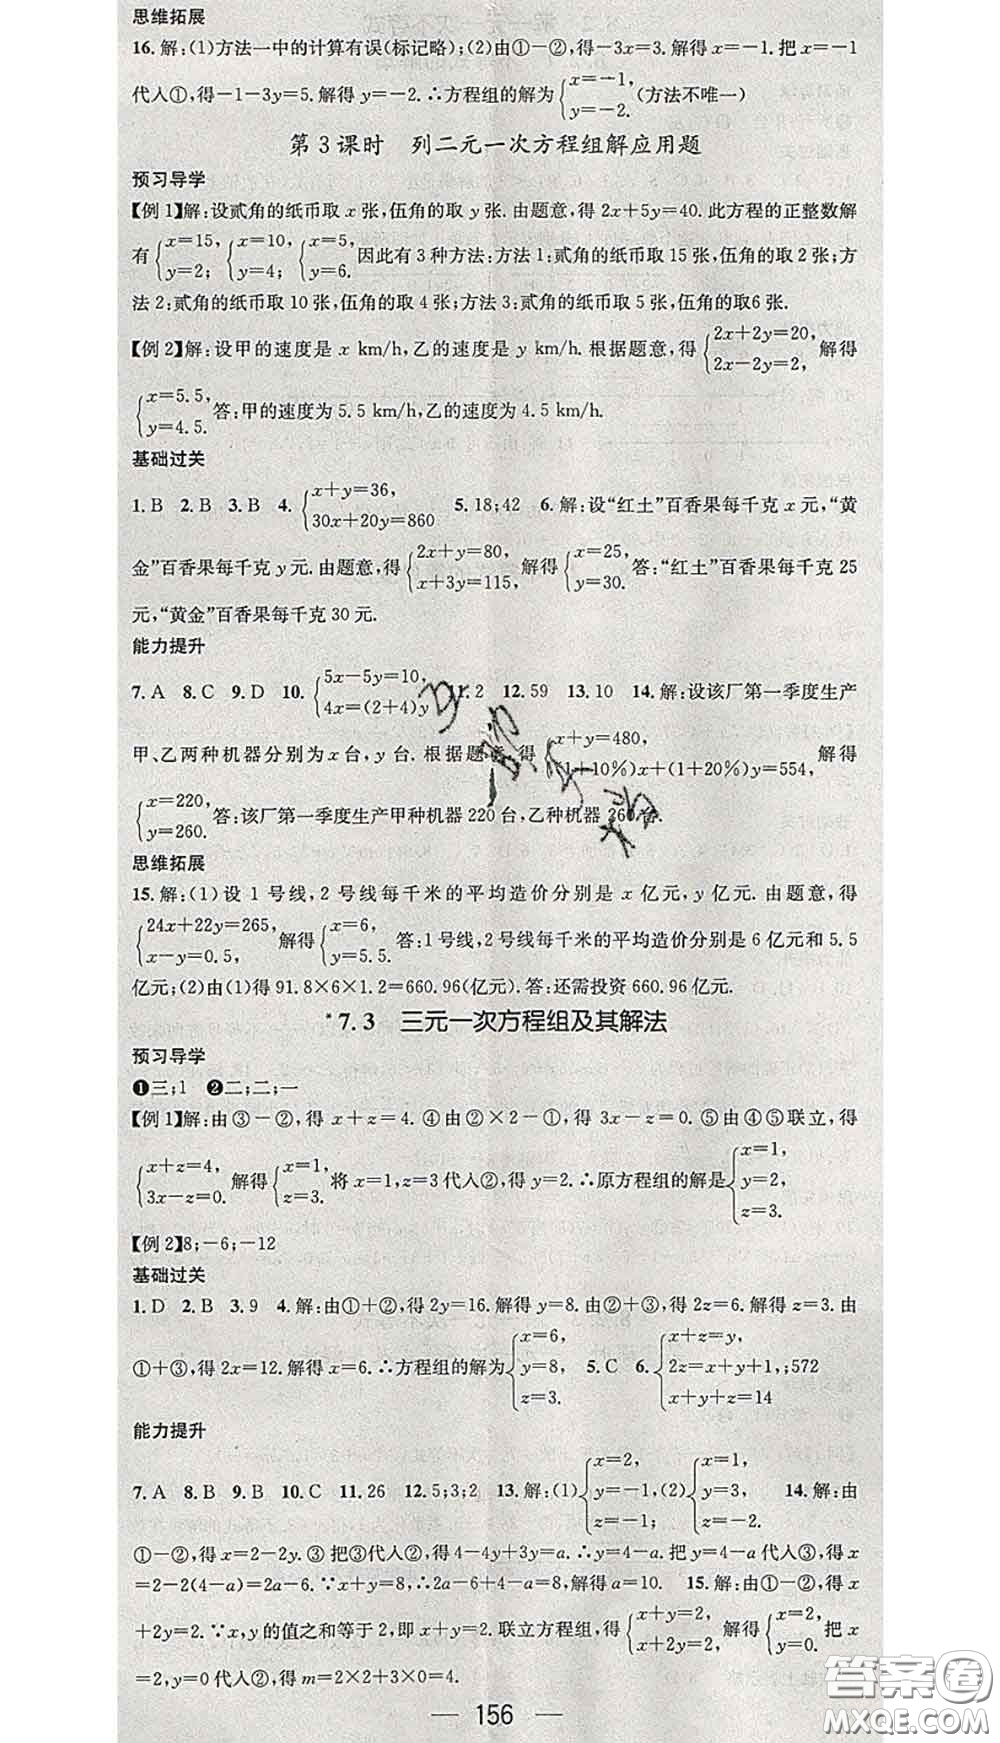 思维拓展
16.解:(1)方法一中的计算有误(标记略);(2)由①-②,得-3x=3.解得x=-1.把x=-1
代人①,得-1-3y=5.解得y=-2.∴方程组的解为{x=-1, y=-2. (方法不唯一)
第3课时 列二元一次方程组解应用题
预习导学
【例1】解:设贰角的纸币取x张,伍角的取y张.由题意,得2x+5y=40.此方程的正整数解
有{x=15, y=2; {x=10, y=4; {x=5, y=6. 因此有3种方法:方法1:贰角的纸币取15张,伍角的取2张;方
法2:贰角的纸币取10张,伍角的取4张;方法3:贰角的纸币取5张,伍角的取6张.
【例2】解:设甲的速度是x km/h,乙的速度是y km/h.根据题意,得{2x+2y=20, 2x-2y=2, 解得
{x=5.5, y=4.5. 答:甲的速度为5.5 km/h,乙的速度为4.5 km/h.
基础过关
1.B 2.B 3.B 4.{x+y=36, 30x+20y=860 5.18;42 6.解:设“红土”百香果每千克x元,“黄
金”百香果每千克y元.由题意,得{2x+y=80, x+3y=115, 解得{x=25, y=30. 答:“红土”百香果每千克25
元,“黄金”百香果每千克30元.
能力提升
7.A 8.C 9.D 10.{5x-5y=10, 4x=(2+4)y 11.2 12.59 13.10 14.解:设该厂第一季度生产
甲、乙两种机器分别为x台,y台.根据题意,得{x+y=480, (1+10%)x+(1+20%)y=554, 解得
{x=220, y=260. 答:该厂第一季度生产甲种机器220台,乙种机器260台.
思维拓展
15.解:(1)设1号线,2号线每千米的平均造价分别是x亿元,y亿元.由题意,得
{24x+22y=265, x-y=0.5, 解得{x=6, y=5.5. 答:1号线,2号线每千米的平均造价分别是6亿元和5.5
亿元;(2)由(1)得91.8×6×1.2=660.96(亿元).答:还需投资660.96亿元.
*7.3 三元一次方程组及其解法
预习导学
❶三;1 ❷二;二;一
【例1】解:由③-②,得x+z=4.④由②×2-①,得3x-z=0.⑤由④⑤联立,得
{x+z=4, 3x-z=0. 解得{x=1, z=3. 将x=1,z=3代人②,得y=2.∴原方程组的解是{x=1, y=2, z=3.
【例2】8;-6;-12
基础过关
1.D 2.B 3.9 4.解:由①+②,得2y=16.解得y=8.由②+③,得2z=6.解得z=3.由
①+③,得2x=12.解得x=6.∴方程组的解为{x=6, y=8, z=3. 5.C 6.{x+z=y, 2z=x+y+1, x+y+z=14 ;572
能力提升
7.A 8.B 9.B 10.C 11.26 12.5;3;2 13.解:(1){x=2, y=-1, z=-1; (2){x=1, y=3, z=-2. 14.解:由
①-②,得x=2-2y.③把③代人②,得4-4y+3y=a.∴y=4-a.把y=4-a代人③,得x
=2-2(4-a)=2a-6.∵x+y=8,∴2a-6+4-a=8,解得a=10. 15.解:由①-②,得x
+2y=2.∵x,y的值之和等于2,即x+y=2.联立方程组,得{x+y=2, x+2y=2, 解得{x=2, y=0. 把x
=2,y=0代人②,得m=2×2+3×0=4.
156
答案圈
MXQE.COM